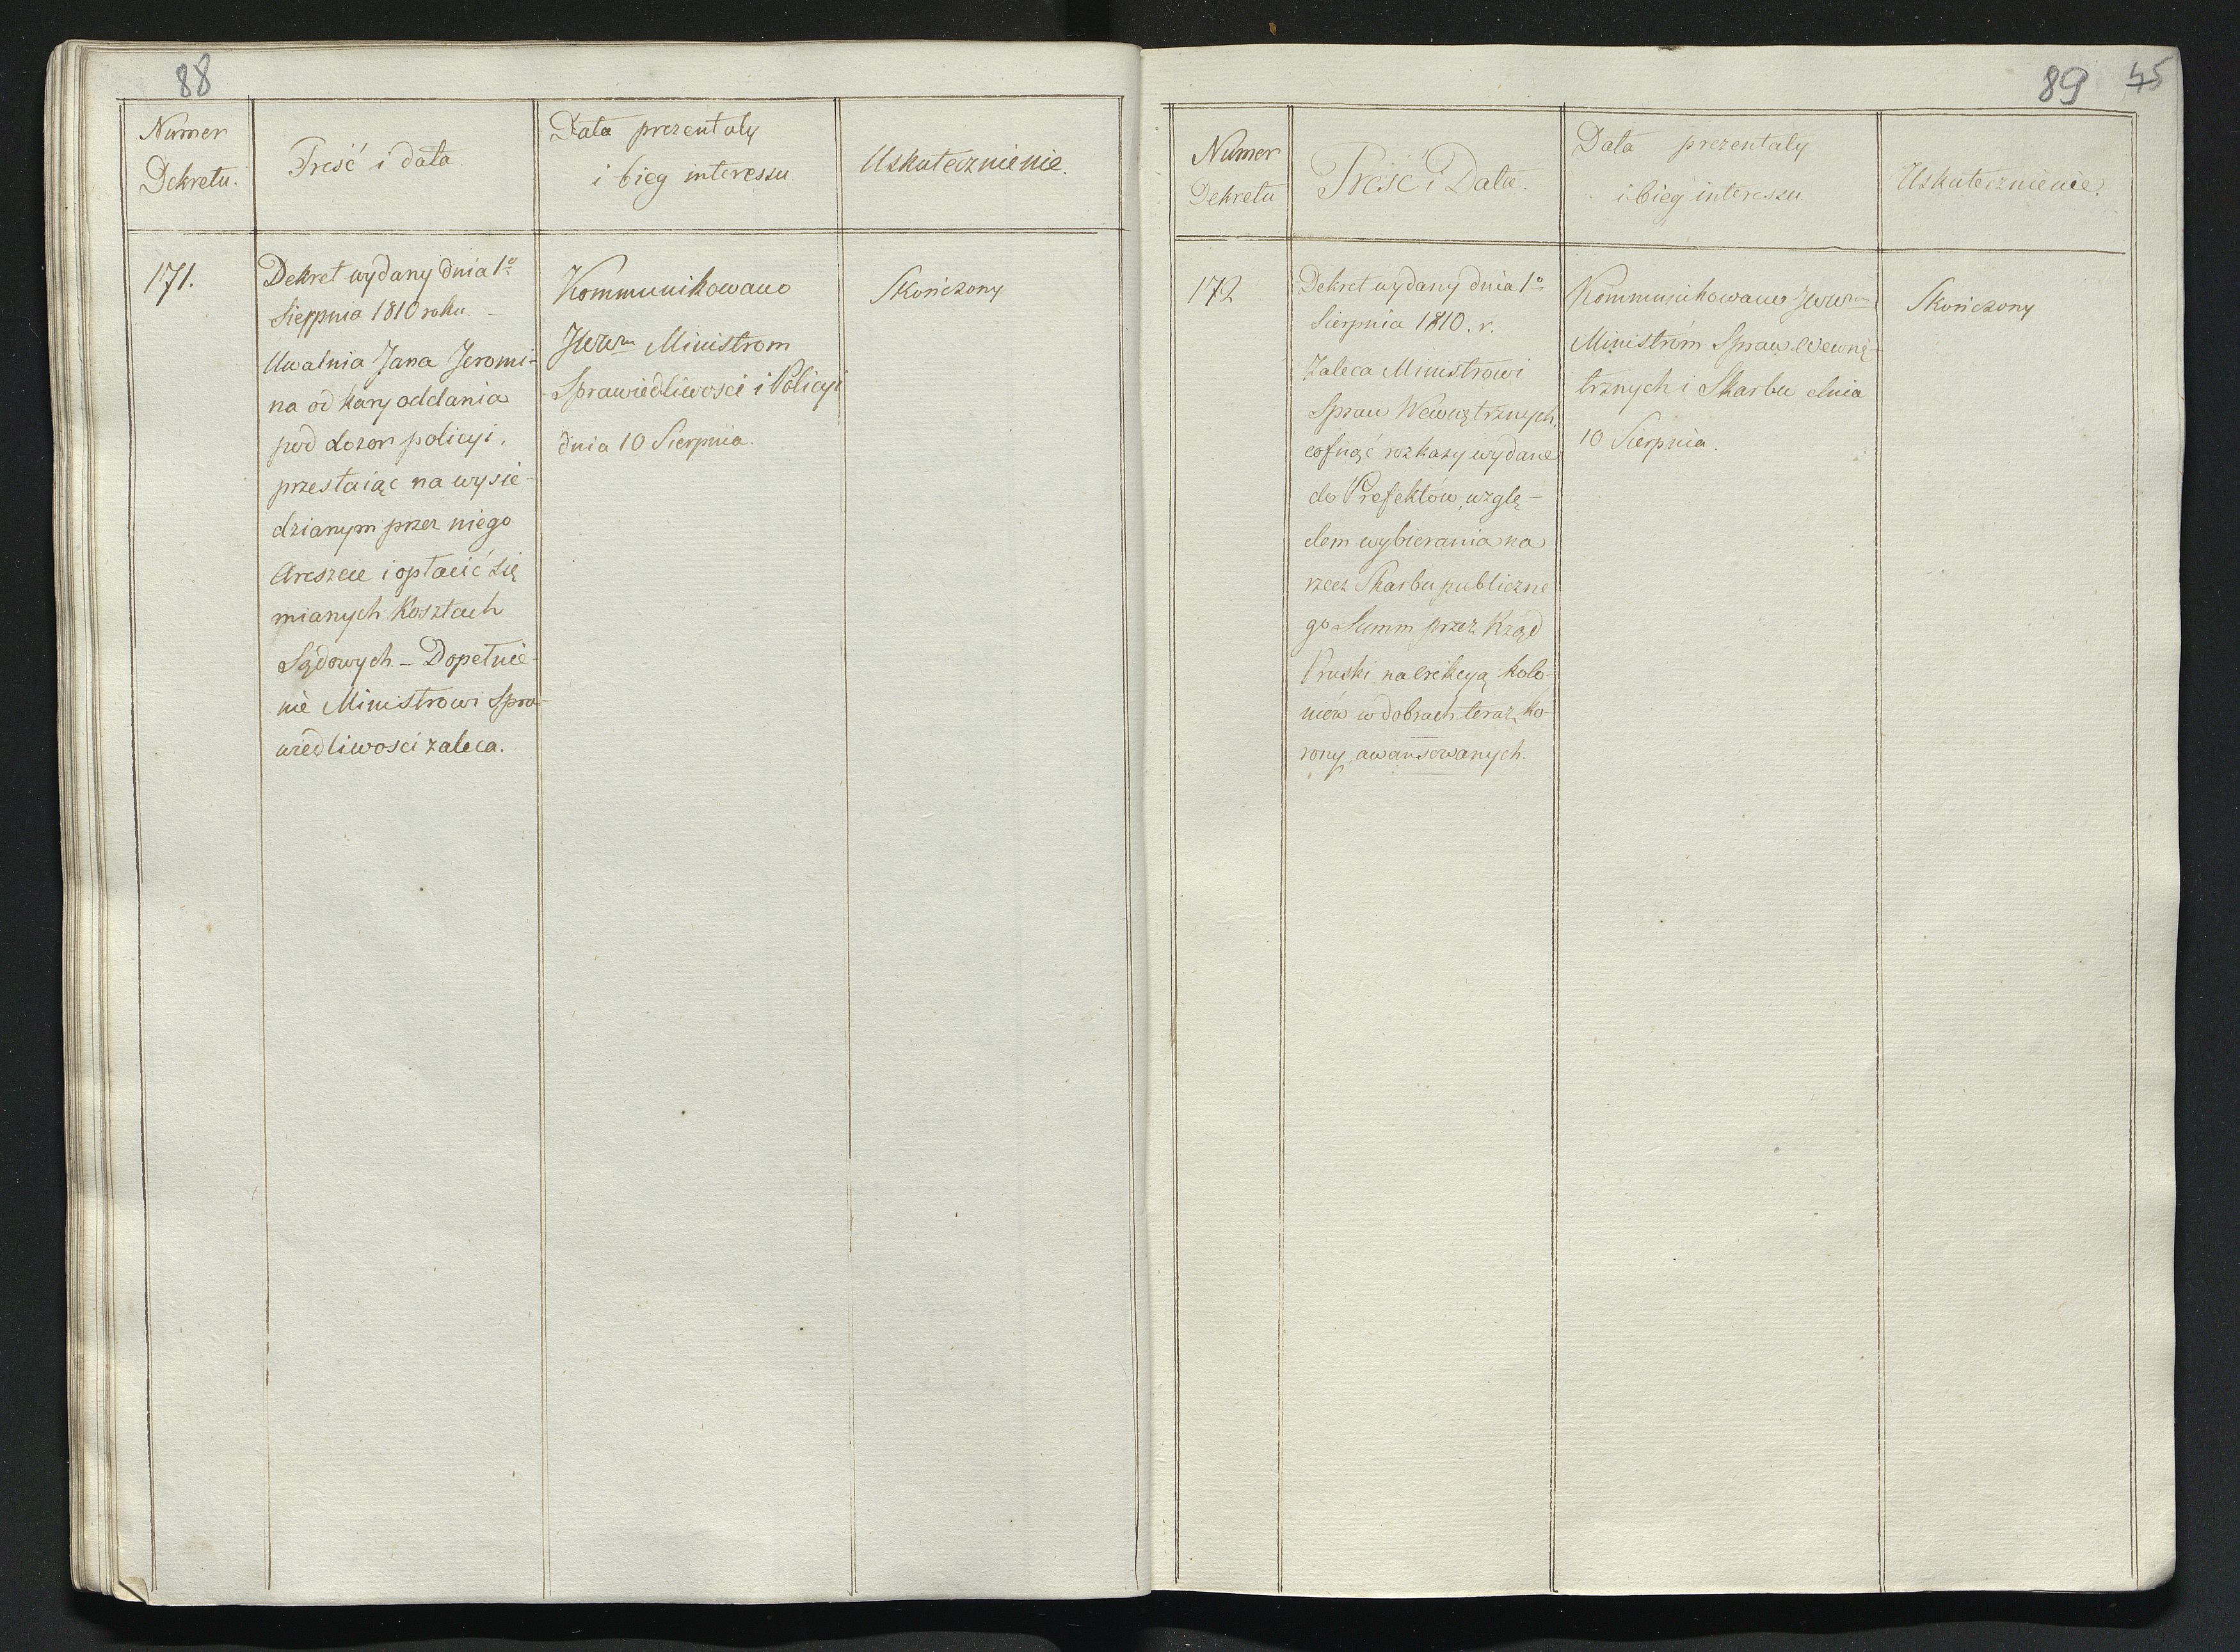 88
Numer
Dekretu.
Treść i data
Data prezentaty
i bieg interessu
Uskutecznienie.
171.
Dekret wydany dnia 1º
Sierpnia 1810 roku. –
Uwalnia Jana Jeromi-
na od kary oddania
pod dozor policyi,
przestaiąc na wysie-
dzianym przez niego
Areszcie i opłacić się
mianych Kosztach
Sądowych – Dopełnie-
nie Ministrowi Spra-
wiedliwosci zaleca.
Kommunikowano
JWWm Ministrom
Sprawiedliwości i Policyi
dnia 10 Sierpnia.
Skończony
89 45
Numer
Dekretu
Treść i Data.
Data prezentaty
i bieg interessu.
Uskutecznienie.
172
Dekret wydany dnia 1º
Sierpnia 1810. r.
Zaleca Ministrowi
Spraw Wewnętrznych,
cofnąć rozkazy wydane
do Prefektów, wzglę-
dem wybierania na
rzecz Skarbu publiczne
go Summ przez Rząd
Pruski na erekcyą kolo-
niów w dobrach teraz Ko-
rony, awansowanych.
Kommunikowano JWWm
Ministróm Spraw Wewnę-
trznych i Skarbu dnia
10 Sierpnia.
Skończony